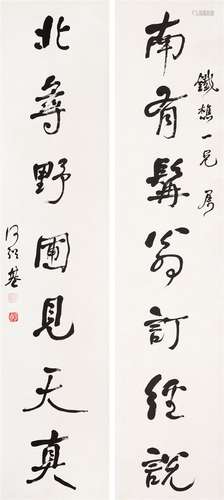 南有髯翁訂經說
鐵樵一兄屬
北尋野圃見天真
何紹基